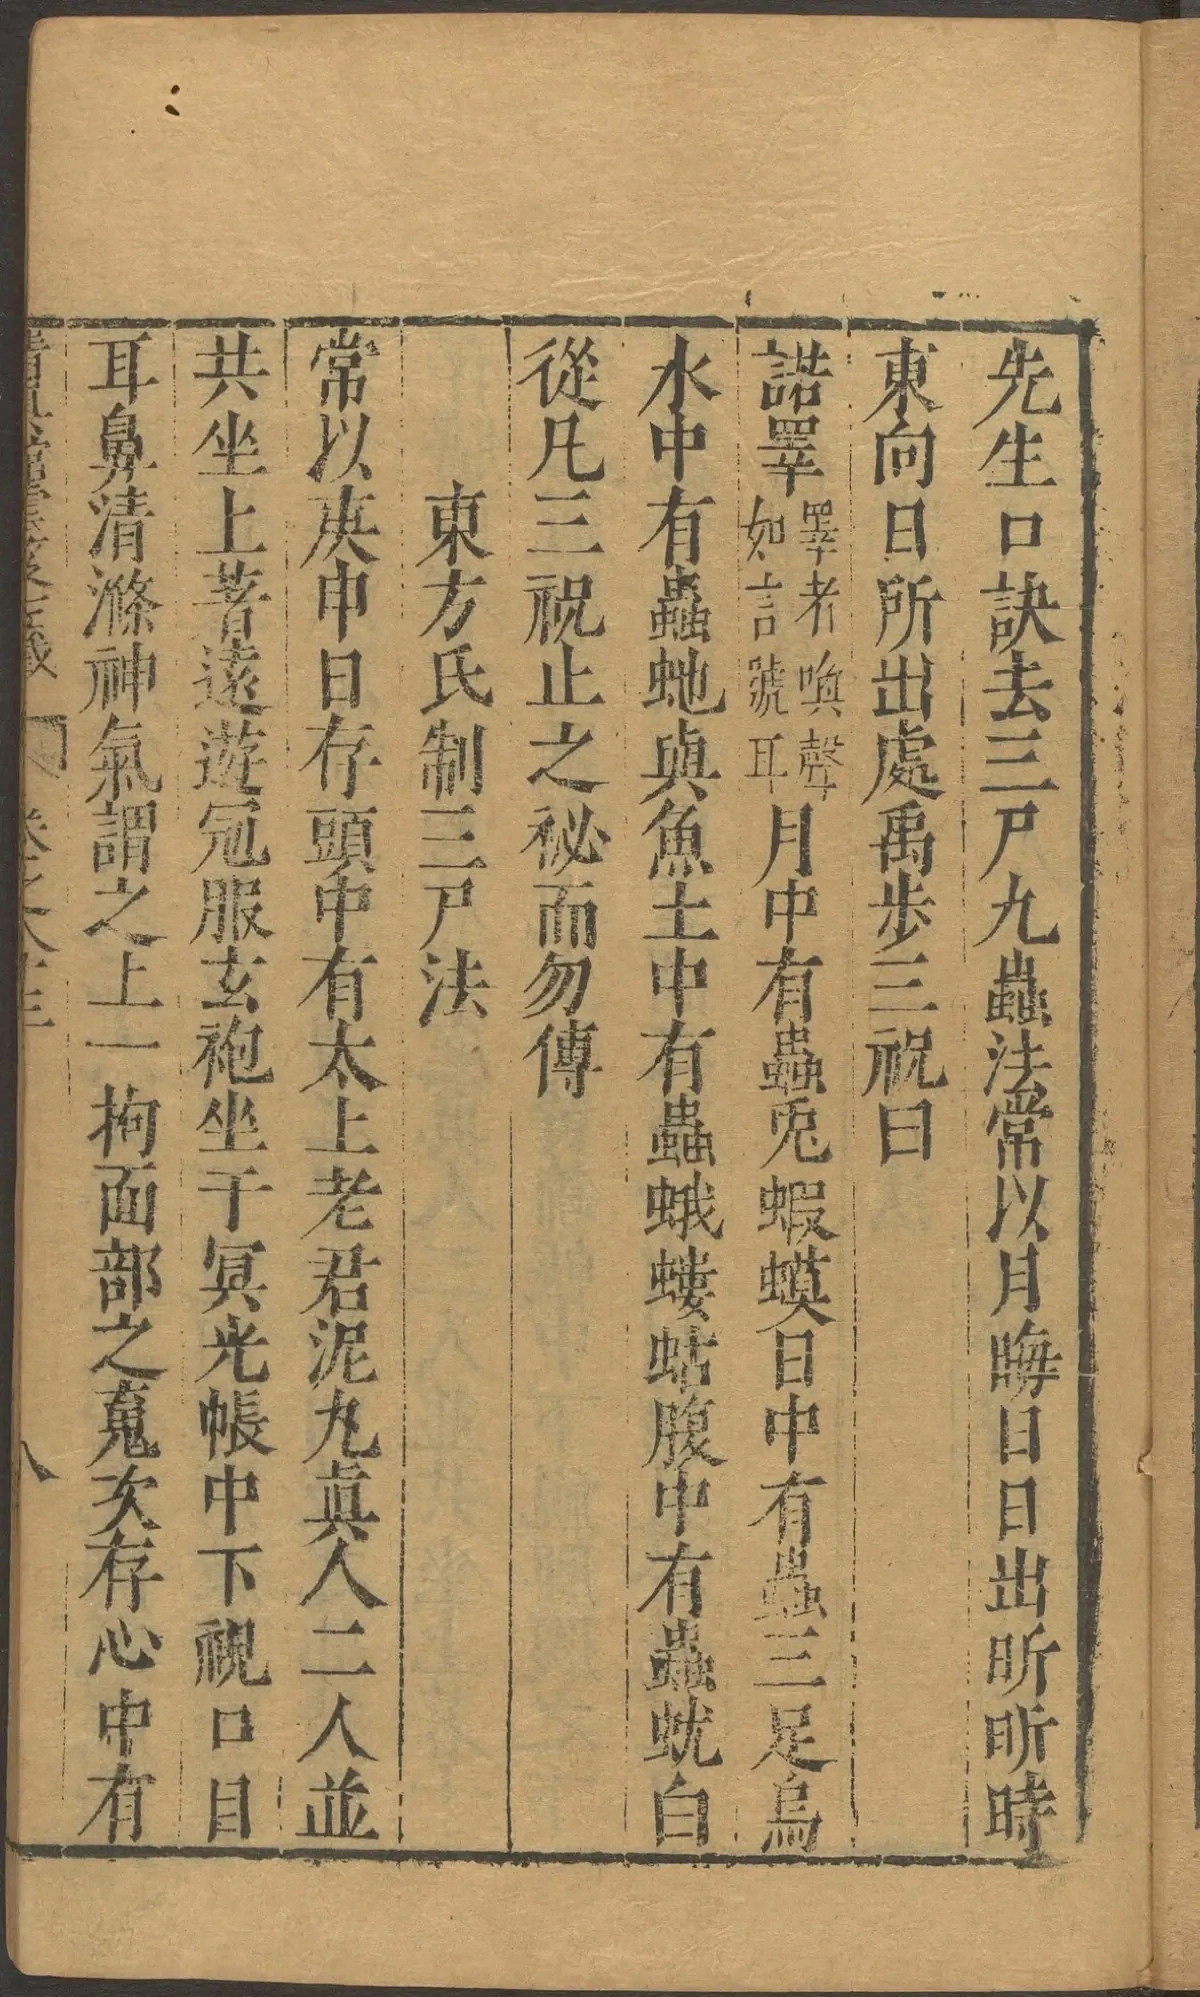 先生口訣去三尸九蟲法常以月晦日日出昕昕時
東向日所出處禹步三祝曰
誥睪睪者喚聲如言號耳月中有蟲兎蝦蟆日中有蟲三足烏
水中有蟲虵與魚土中有蟲蛾螻蛄腹中有蟲蚘白
從凡三祝止之祕而勿傳
東方氏制三尸法
常以庚申日存頭中有太上老君泥丸眞人二人並
共坐上著遠遊冠服玄袍坐于冥光帳中下視口目
耳鼻清滌神氣謂之上一拘面部之䰟次存心中有
八